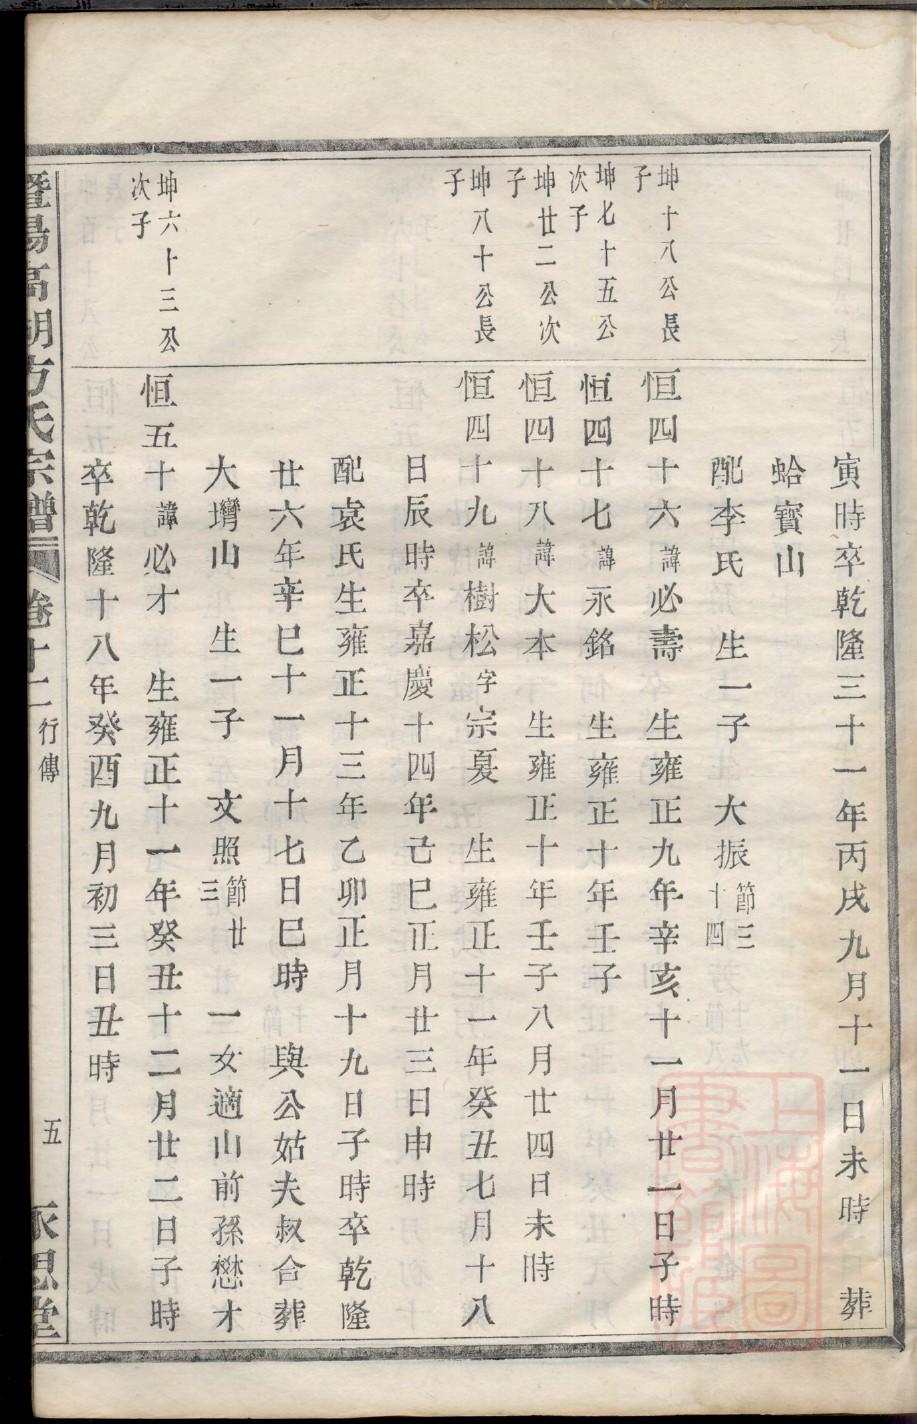 寅時卒乾隆三十一年丙戌九月十一日未時 葬
蛤寶山
配李氏 生一子 大振 節三十四
坤十八公長子
恒四十六 諱必壽 生雍正九年辛亥十一月廿一日子時
坤七十五公次子
恒四十七 諱永銘 生雍正十年壬子
坤廿二公次子
恒四十八 諱大本 生雍正十年壬子八月廿四日未時
坤八十公長子
恒四十九 諱樹松 字宗夏 生雍正十一年癸丑七月十八
日辰時卒嘉慶十四年己巳正月廿三日申時
配袁氏生雍正十三年乙卯正月十九日子時卒乾隆
廿六年辛巳十一月十七日巳時 與公姑夫叔合葬
大塆山 生一子 文照 節廿三 一女適山前孫懋才
坤六十三公次子
恒五十 諱必才 生雍正十一年癸丑十二月廿二日子時
卒乾隆十八年癸酉九月初三日丑時
暨陽高湖方氏宗譜 卷十二 行傳 五 永思堂
上海圖書館藏